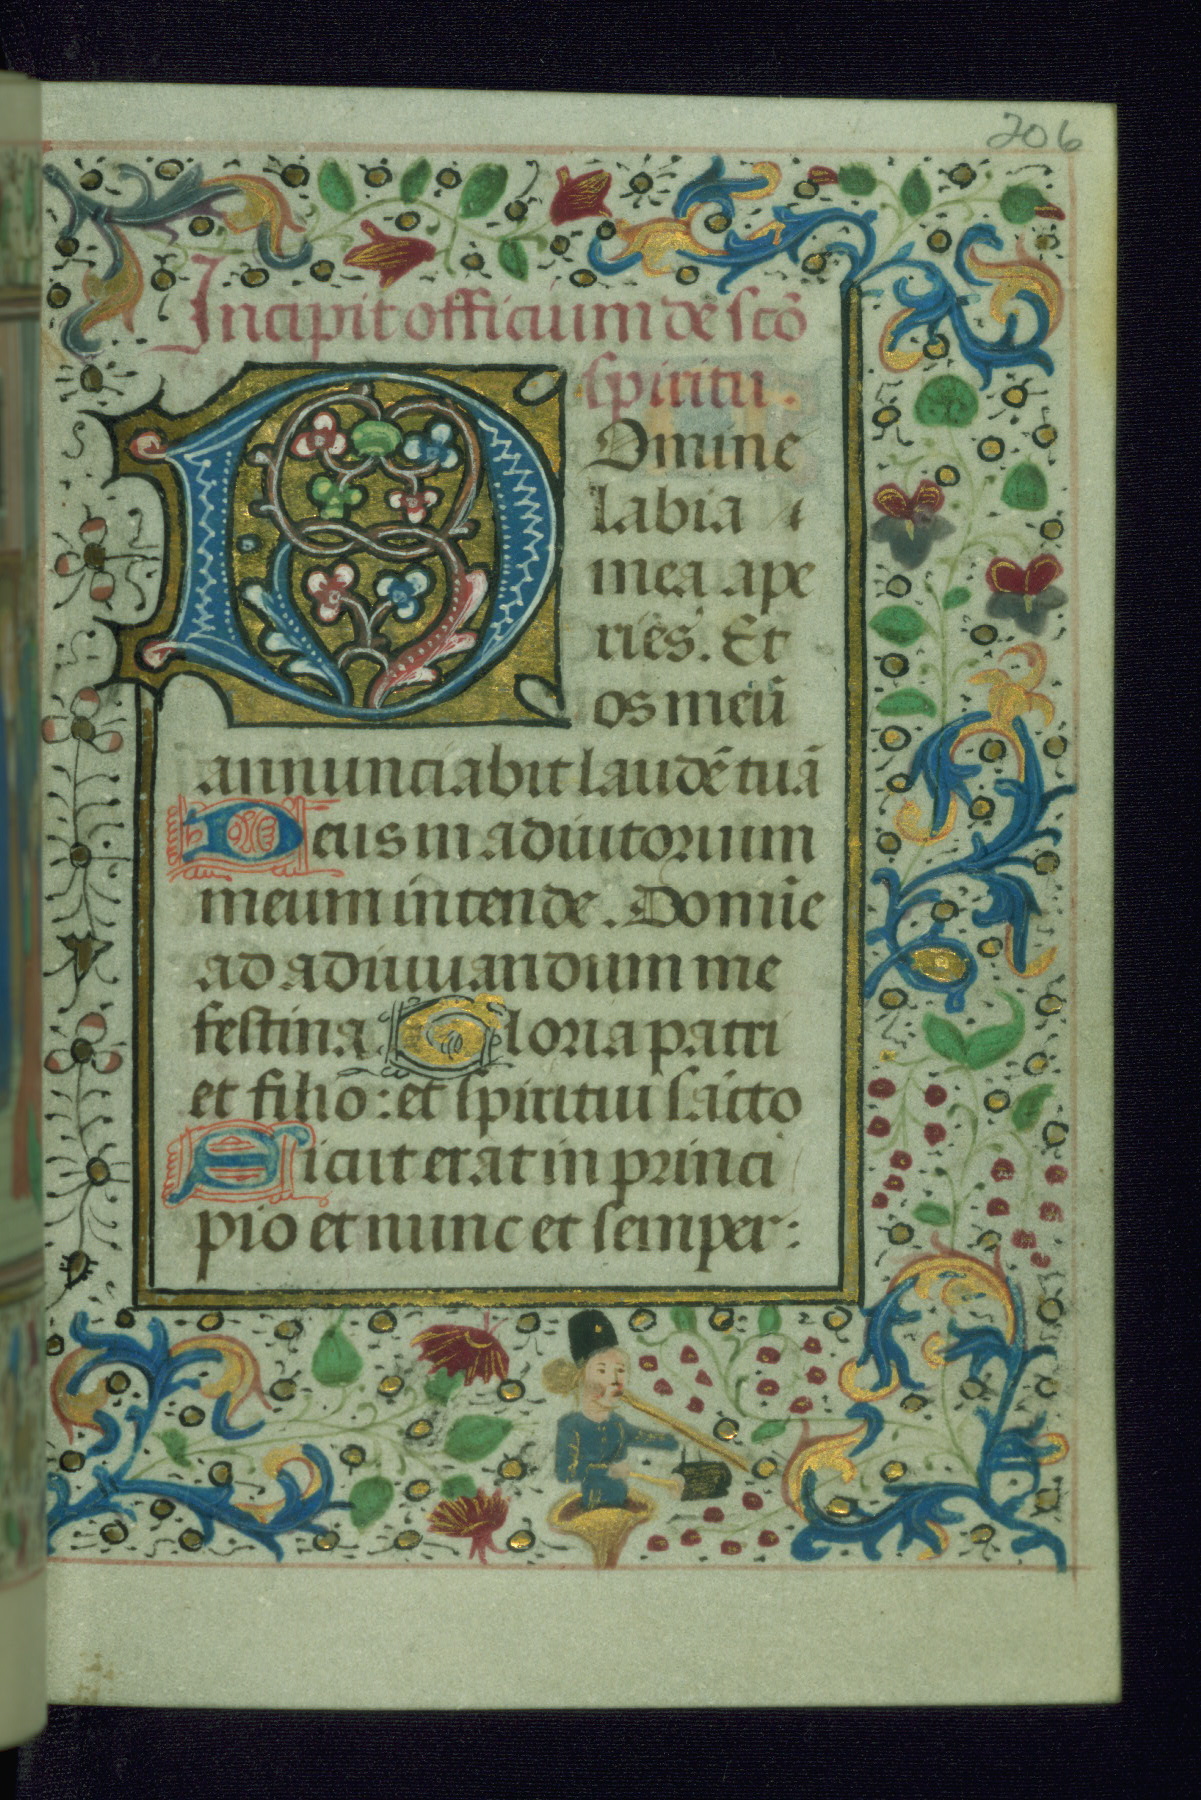 206
Incipit officium de sco̅
spiritu.
Domine
labia
mea ape
ries. Et
os meu̅
annunciabit laude̅ tua̅
Deus in adiutorium
meum intende. Domi̅e
ad adiuuandum me
festina. Gloria patri
et filio: et spiritui sa̅cto
Sicut erat in princi
pio et nunc et semper: